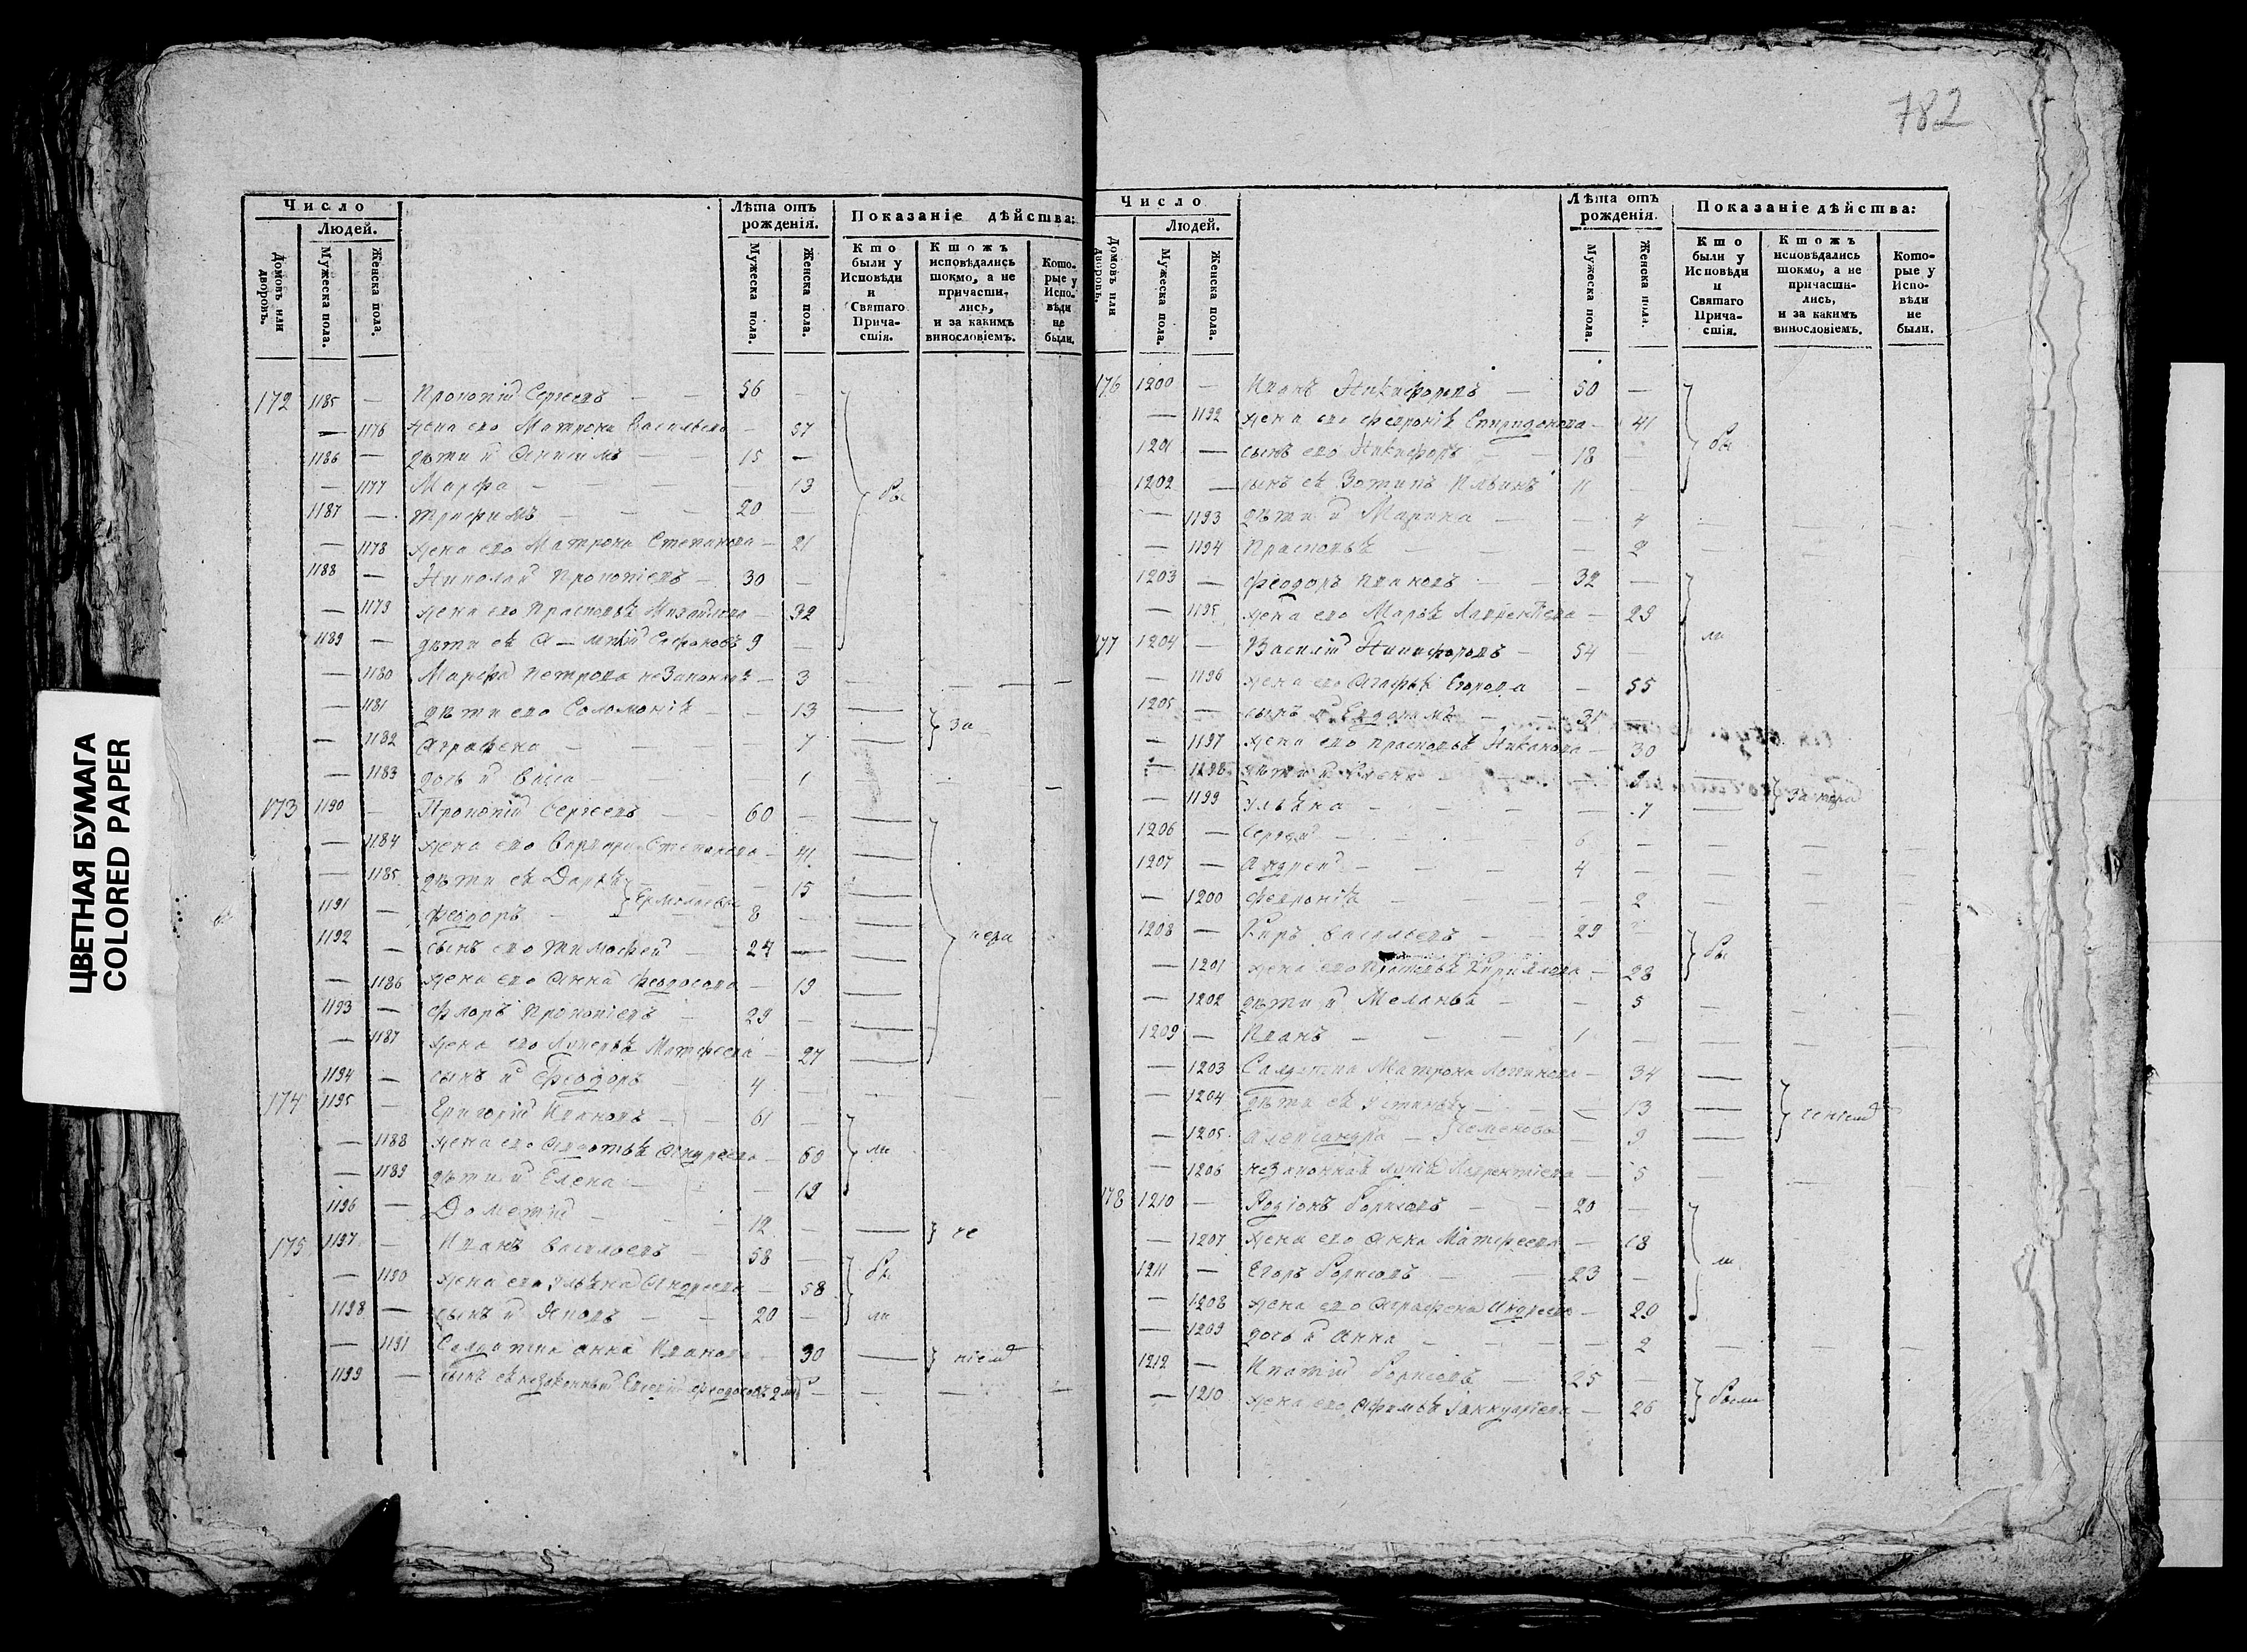 ЦВЕТНАЯ БУМАГА
COLORED PAPER
Число
Людей.
Домовъ или дворовъ.
Мужеска пола.
Женска пола.
Лѣта отъ рожденія.
Мужеска пола.
Женска пола.
Показаніе дѣйства:
Кто были у Исповѣди и Святаго Причастія.
Ктожъ исповѣдались токмо, а не причастились, и за какимъ винословіемъ.
Которые у Исповѣди не были.
172 1185 — Прокопій Сергеевъ — — 56 —
— 1176 жена его Матрона Васильева — 57
1186 — дѣти и Анисимъ — — 15 —
— 1177 Марфа — — — 13
1187 — Трифимъ — — — 20 —
— 1178 жена его Матрона Степанова — 21
1188 — Николай Прокопіевъ — 30 —
— 1179 жена его Прасковья Михайлова — 32
1189 — дѣти 9 —
— 1180 Марфа Петрова незаконная — 3
— 1181 дѣти его Соломонія — — 13
— 1182 Аграфена — — — 7
— 1183 дочь и Васса — — 1
173 1190 — Прокопій Сергеевъ — — 60 —
— 1184 жена его Варвара Степанова — 41
— 1185 дѣти ея Дарья — 15
1191 — Феодоръ — Ермолаевы 8 —
1192 — сынъ его Тимофей — 24 —
— 1186 жена его Анна Феодосова — 19
1193 — Флоръ Прокопіевъ — 29 —
— 1187 жена его Лукерья Матфеева — 27
1194 — сынъ и Феодоръ — 4 —
174 1195 — Григорій Ивановъ — 61 —
— 1188 жена его Авдотья Андреева — 60
— 1189 дѣти и Елена — — 19
1196 — Дометій — — 12 —
175 1197 — Иванъ Васильевъ — 58 —
— 1190 жена его Ульяна Андреева — 58
1198 — сынъ и Яковъ — — 20 —
— 1191 Салдатка Анна Иванова 30
1199 — сынъ ея незаконный
782
Число
Людей.
Домовъ или дворовъ.
Мужеска пола.
Женска пола.
Лѣта отъ рожденія.
Мужеска пола.
Женска пола.
Показаніе дѣйства:
Кто были у Исповѣди и Святаго Причастія.
Ктожъ исповѣдались токмо, а не причастились, и за какимъ винословіемъ.
Которые у Исповѣди не были.
176 1200 — Иванъ Никифоровъ — 50 —
— 1192 жена его Февронія Спиридонова — 41
1201 — сынъ его Никифоръ — — 18 —
1202 — сынъ ея Зотикъ Ильинъ 11 —
— 1193 дѣти и Марина — — 4
— 1194 Прасковья — — — 2
1203 — Феодоръ Ивановъ — 32 —
— 1195 жена его Марья Лаврентіева — 29
177 1204 — Василій Никифоровъ — 54 —
— 1196 жена его Агафья Егорова — 55
1205 — сынъ и Евдокимъ — — 31 —
— 1197 жена его Прасковья Никонова — 30
— 1198 дѣти и
— 1199 Ульяна — — — 7
1206 — Сергей — — 6 —
1207 — Андрей — — — 4 —
— 1200 Февронія — — — 2
1208 — Киръ Васильевъ — — 29 —
— 1201 жена его Прасковья Кириллова — 28
— 1202 дѣти и Меланья — — 5
1209 — Иванъ — — — 1 —
— 1203 Салдатка Матрона Логинова — 34
— 1204 дѣти ея Устинья — — 13
— 1205 Александра — Семеновы — 9
— 1206 незаконная Лукія Лаврентіева — 5
178 1210 — Родіонъ Борисовъ — — 20 —
— 1207 жена его Анна Матфеева — 18
1211 — Егоръ Борисовъ — — 23 —
— 1208 жена его Аграфена Андреева — 20
— 1209 дочь и Анна — — — 2
1212 — Ипатій Борисовъ — 25 —
— 1210 жена его Афимья Іаннуаріева — 26 были